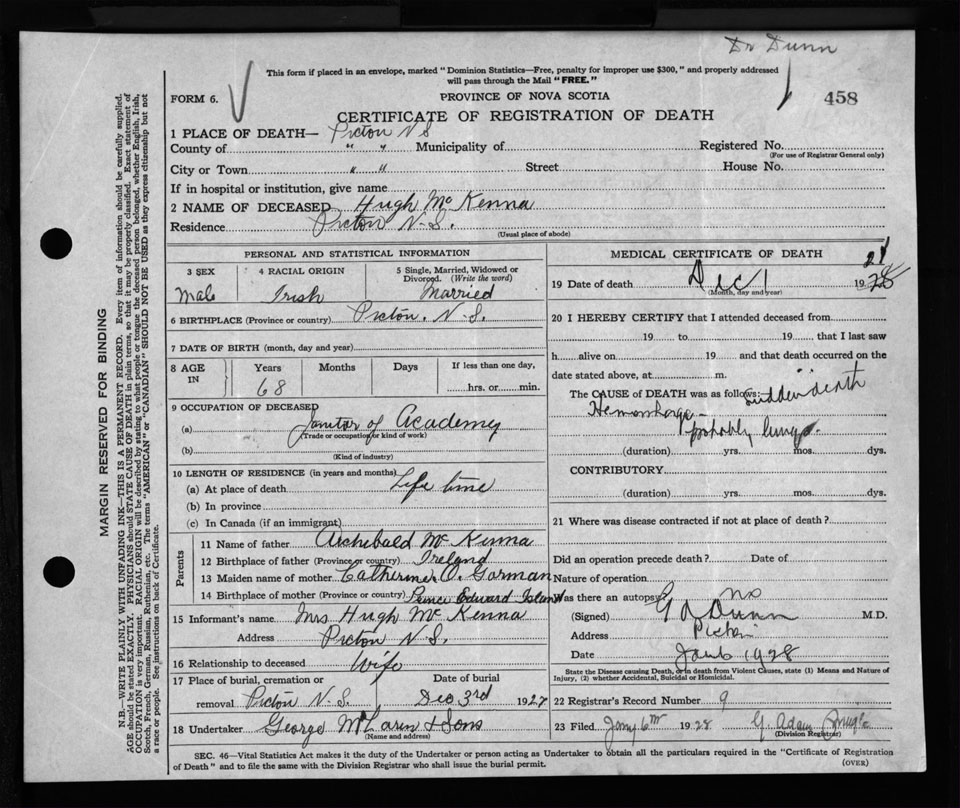 Dr Dunn
This form if placed in an envelope, marked "Dominion Statistics—Free, penalty for improper use $300," and properly addressed
will pass through the Mail "FREE."
FORM 6.
PROVINCE OF NOVA SCOTIA
458
CERTIFICATE OF REGISTRATION OF DEATH
1 PLACE OF DEATH— Picton N S
County of " " Municipality of Registered No.
(For use of Registrar General only)
City or Town " " Street House No.
If in hospital or institution, give name
2 NAME OF DECEASED Hugh Mc Kenna
Residence Picton N.S.
(Usual place of abode)
PERSONAL AND STATISTICAL INFORMATION
3 SEX 4 RACIAL ORIGIN 5 Single, Married, Widowed or
Divorced. (Write the word)
Male Irish Married
6 BIRTHPLACE (Province or country) Picton. N.S.
7 DATE OF BIRTH (month, day and year)
8 AGE IN Years Months Days If less than one day,
68 hrs. or min.
9 OCCUPATION OF DECEASED
(a) Janitor of Academy
(Trade or occupation or kind of work)
(b)
(Kind of industry)
10 LENGTH OF RESIDENCE (in years and months)
(a) At place of death Life time
(b) In province
(c) In Canada (if an immigrant)
Parents
11 Name of father Archibald Mc Kenna
12 Birthplace of father (Province or country) Ireland
13 Maiden name of mother Catherine O. Gorman
14 Birthplace of mother (Province or country) Prince Edward Island
15 Informant's name Mrs Hugh Mc Kenna
Address Picton N.S.
16 Relationship to deceased Wife
17 Place of burial, cremation or Date of burial
removal Picton N.S. Dec 3rd 1927
18 Undertaker George McLaren & Sons
(Name and address)
MEDICAL CERTIFICATE OF DEATH
19 Date of death Dec 1 19 28
(Month, day and year)
20 I HEREBY CERTIFY that I attended deceased from
19 to 19 that I last saw
h alive on 19 and that death occurred on the
date stated above, at m.
The CAUSE OF DEATH was as follows: sudden death
Hemorrhage—
probably lungs.
(duration) yrs. mos. dys.
CONTRIBUTORY
(duration) yrs. mos. dys.
21 Where was disease contracted if not at place of death?
Did an operation precede death? Date of
Nature of operation
Was there an autopsy? no
(Signed) Dunn M.D.
Address Picton
Date 1928
State the Disease causing Death, or in death from Violent Causes, state (1) Means and Nature of
Injury, (2) whether Accidental, Suicidal or Homicidal.
22 Registrar's Record Number 9
23 Filed Jany 6th 1928 G. Adam
(Division Registrar)
SEC. 46—Vital Statistics Act makes it the duty of the Undertaker or person acting as Undertaker to obtain all the particulars required in the "Certificate of Registration
of Death" and to file the same with the Division Registrar who shall issue the burial permit.
(OVER)
MARGIN RESERVED FOR BINDING
N.B.—WRITE PLAINLY WITH UNFADING INK—THIS IS A PERMANENT RECORD. Every item of information should be carefully supplied.
AGE should be stated EXACTLY. PHYSICIANS should STATE CAUSE OF DEATH in plain terms, so that it may be properly classified. Exact statement of
OCCUPATION is very important. RACIAL ORIGIN will be described by stating to what people or tongue the deceased person belonged, whether English, Irish,
Scotch, French, German, Russian, Ruthenian, etc. The terms "AMERICAN" or "CANADIAN" SHOULD NOT BE USED as they express citizenship but not
a race or people. See instructions on back of Certificate.